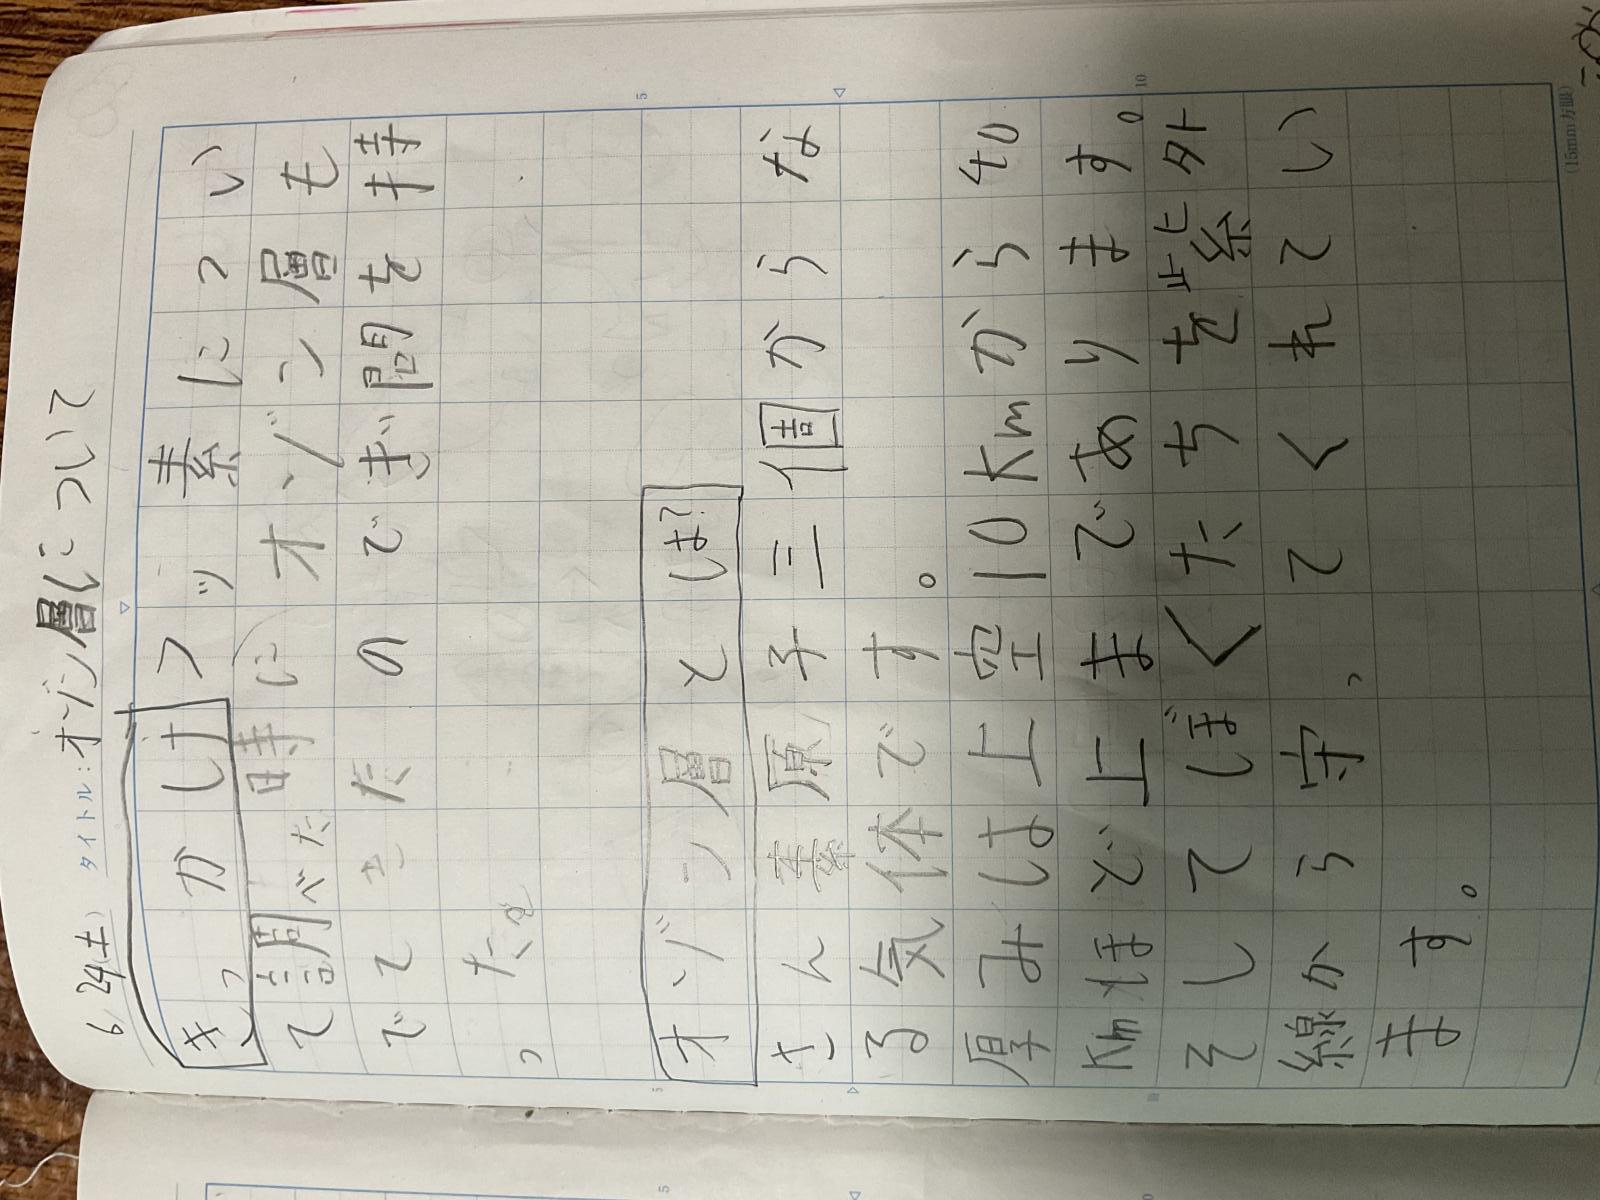 6/24(土) タイトル:オゾン層について
きっかけ フッ素につい
て調べた時にオゾン層も
でてきたのでぎ問を持
った
オゾン層とは?
さん素原子三個からな
る気体です。
厚みは上空10Kmから40
Kmほど上まであります。
そしてぼくたちを紫外
線から守ってくれてい
ます。
5
10
(15mm方眼)